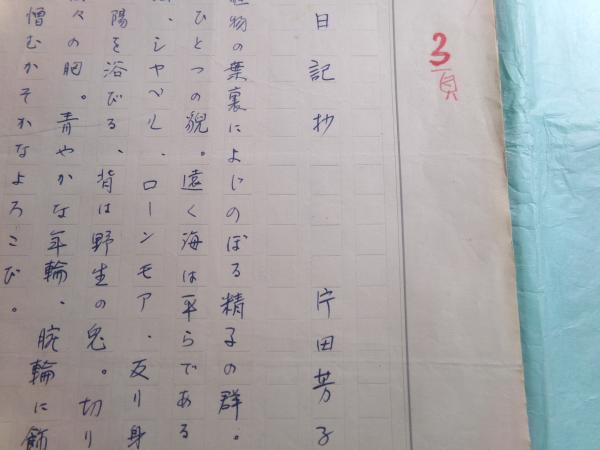 3頁
日記抄 片田芳子
物の葉裏によじのぼる精子の群。
ひとつの貌。遠く海は平らである
、シャベル、ローンモア、反り身
陽を浴びる、背は野生の。切り
々の。青やかな年輪、腕輪に飾
憎むかそかなよろこび。